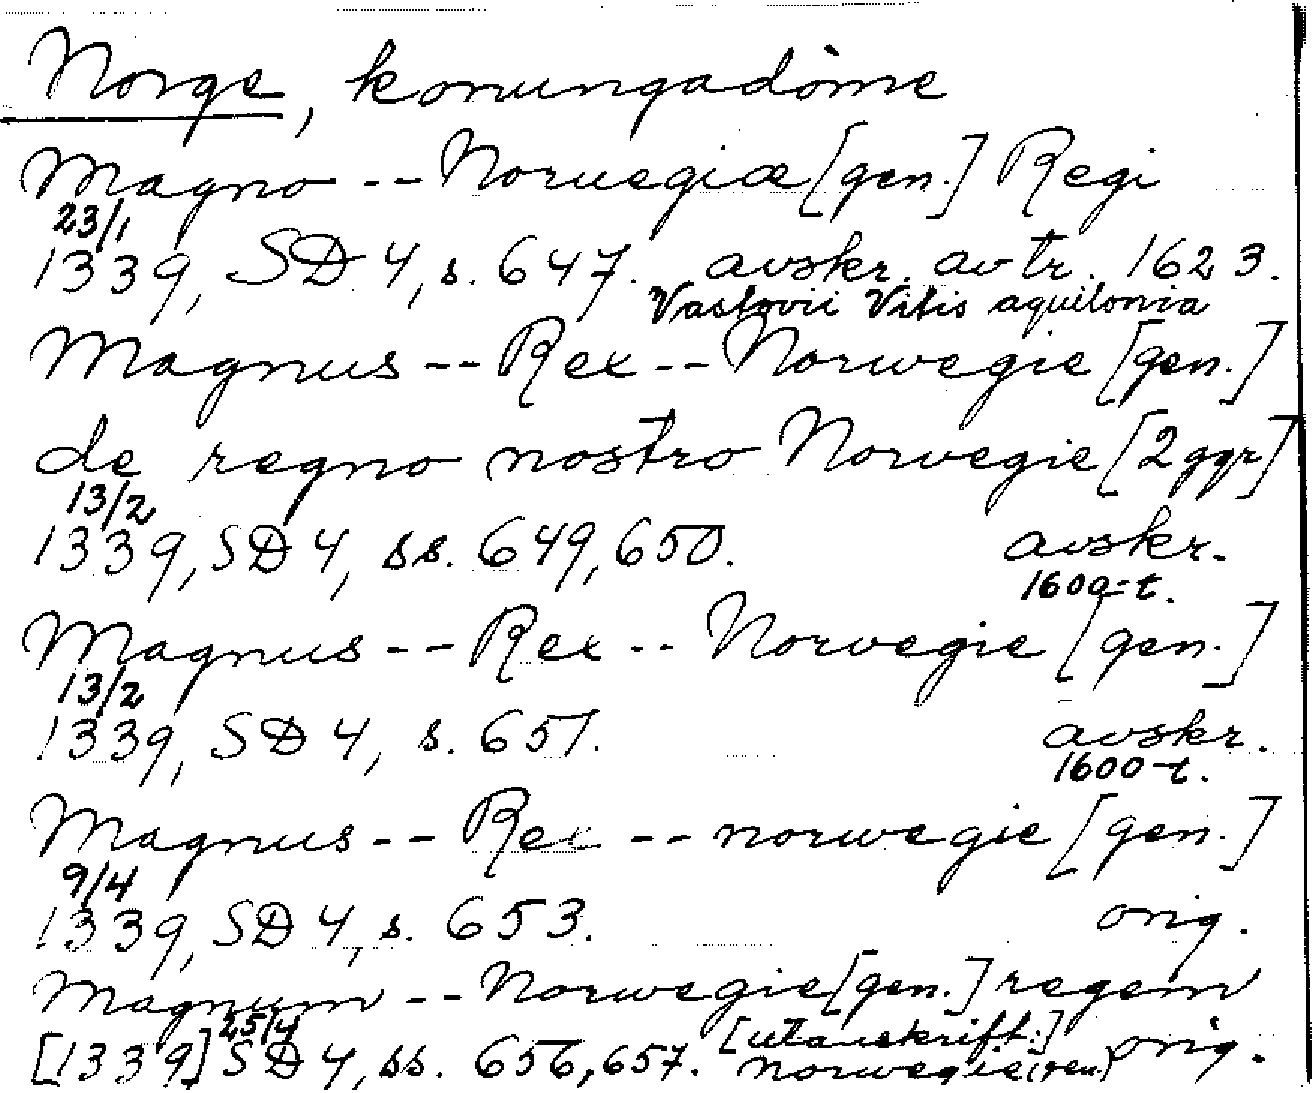 Norge, konungadöme
Magno -- Noruegiæ [gen.] Regi
23/1
1339, SD 4, s. 647. avskr. av tr. 1623.
Vastovii Vitis aquilonia
Magnus -- Rex -- Norwegie [gen.]
de regno nostro Norwegie [2 ggr]
13/2
1339, SD 4, ss. 649, 650. avskr.
1600-t.
Magnus -- Rex -- Norwegie [gen.]
13/2
1339, SD 4, s. 651. avskr.
1600-t.
Magnus -- Rex -- norwegie [gen.]
9/4
1339, SD 4, s. 653. orig.
Magnum -- Norwegie [gen.] regem
25/4 [utanskrift:]
[1339] SD 4, ss. 656, 657. norwegie (gen.) orig.